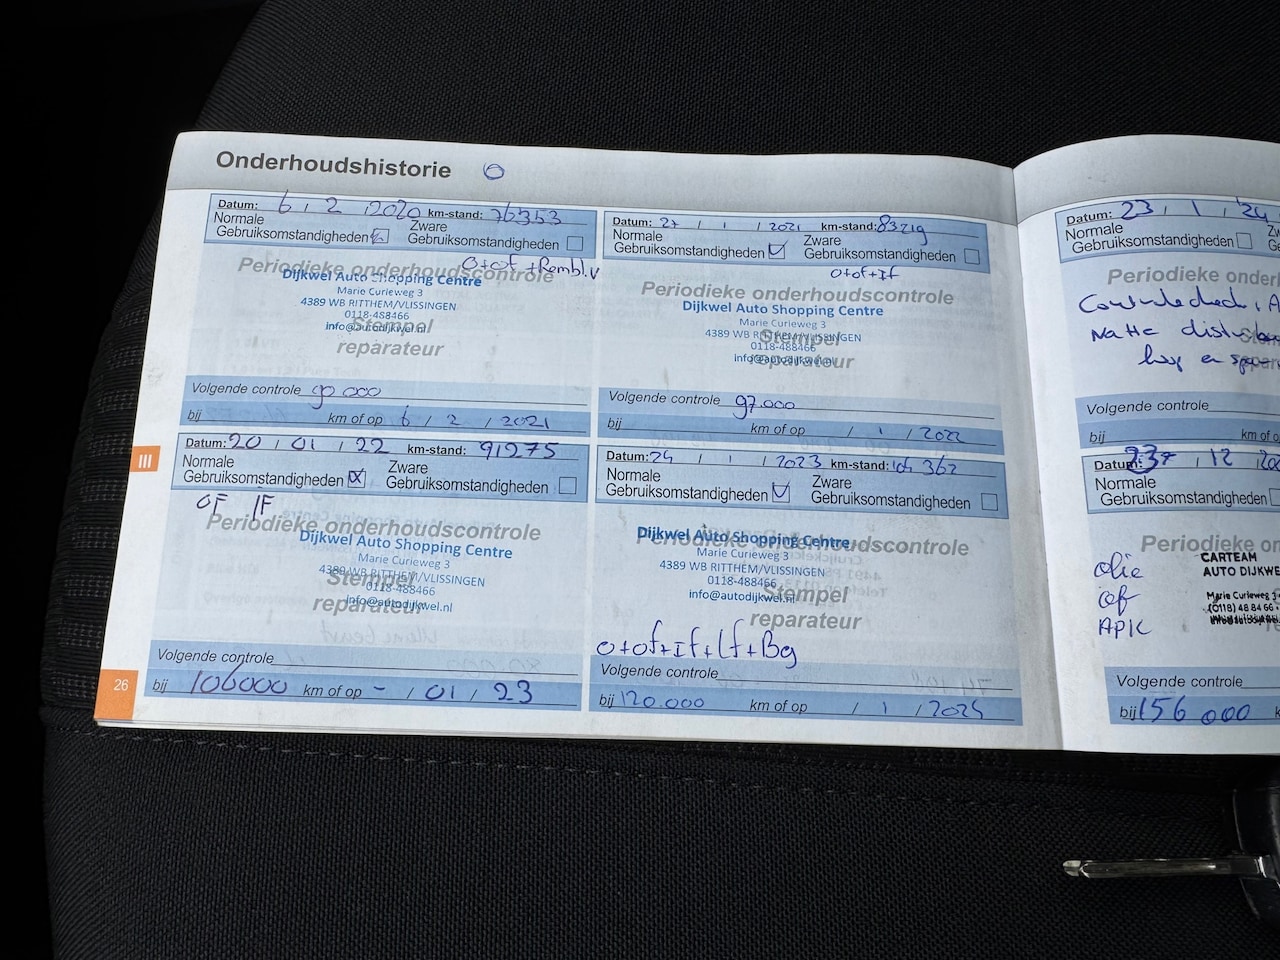 Onderhoudshistorie
Datum: 6 / 2 / 2020 km-stand: 76353
Normale Gebruiksomstandigheden
Zware Gebruiksomstandigheden
O+of +Rembl.v
Periodieke onderhoudscontrole
Dijkwel Auto Shopping Centre
Marie Curieweg 3
4389 WB RITTHEM/VLISSINGEN
0118-488466
info@autodijkwel.nl
Stempel
reparateur
Volgende controle 90 000
bij km of op 6 / 2 / 2021
Datum: 27 / 1 / 2021 km-stand: 83219
Normale Gebruiksomstandigheden
Zware Gebruiksomstandigheden
O+of+If
Periodieke onderhoudscontrole
Dijkwel Auto Shopping Centre
Marie Curieweg 3
4389 WB RITTHEM/VLISSINGEN
0118-488466
info@autodijkwel.nl
Stempel
reparateur
Volgende controle 97.000
bij km of op / 1 / 2022
III
Datum: 20 / 01 / 22 km-stand: 91275
Normale Gebruiksomstandigheden
Zware Gebruiksomstandigheden
OF IF
Periodieke onderhoudscontrole
Dijkwel Auto Shopping Centre
Marie Curieweg 3
4389 WB RITTHEM/VLISSINGEN
0118-488466
info@autodijkwel.nl
Stempel
reparateur
Volgende controle
bij 106000 km of op - / 01 / 23
Datum: 24 / 1 / 2023 km-stand: 362
Normale Gebruiksomstandigheden
Zware Gebruiksomstandigheden
Periodieke onderhoudscontrole
Dijkwel Auto Shopping Centre
Marie Curieweg 3
4389 WB RITTHEM/VLISSINGEN
0118-488466
info@autodijkwel.nl
Stempel
reparateur
O+of+If+Lf+Bg
Volgende controle
bij 120.000 km of op / 1 /
26
Datum: 23 / 1 / '24
Normale Gebruiksomstandigheden
Periodieke onder
Natte
Volgende controle
bij km of o
Datum: / 12 / 20
Normale Gebruiksomstandigheden
Periodieke on
CARTEAM
AUTO DIJKWE
Marie Curieweg 3
(0118) 48 84 66
olie
of
APK
Volgende controle
bij 156 000 k